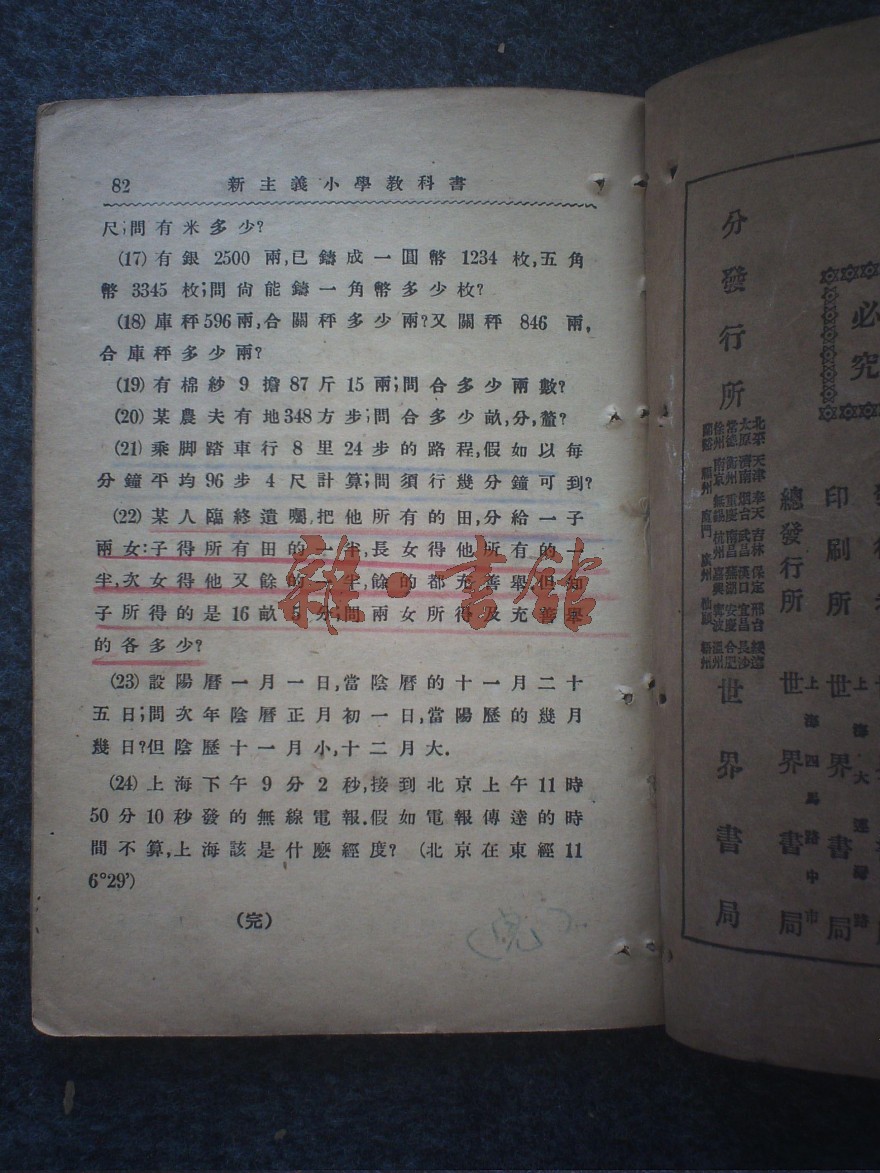 82 新主義小學教科書
尺;問有米多少?
(17) 有銀 2500 兩,已鑄成一圓幣 1234 枚,五角
幣 3345 枚;問尙能鑄一角幣多少枚?
(18) 庫秤596兩,合關秤多少兩?又關秤 846 兩,
合庫秤多少兩?
(19) 有棉紗 9 擔 87 斤 15 兩;問合多少兩數?
(20) 某農夫有地348方步;問合多少畝,分,釐?
(21) 乘脚踏車行 8 里 24 步的路程,假如以每
分鐘平均96步 4 尺計算;問須行幾分鐘可到?
(22) 某人臨終遺囑,把他所有的田,分給一子
兩女:子得所有田的一半,長女得他所有的一
半,次女得他又餘的一半,餘的都充善舉.但知
子所得的是 16 畝 5 分;問兩女所得及充善舉
的各多少?
(23) 設陽曆一月一日,當陰曆的十一月二十
五日;問次年陰曆正月初一日,當陽歷的幾月
幾日?但陰歷十一月小,十二月大.
(24) 上海下午 9 分 2 秒,接到北京上午 11 時
50 分 10 秒發的無線電報.假如電報傳達的時
間不算,上海該是什麽經度? (北京在東經 11
6°29')
(完)
(完)
雜·書館
必究
分發行所
北平 天津 奉天 吉林 保定 邢台 綏遠
太原 濟南 烟台 武昌 漢口 宜昌 長沙
常德 衡州 重慶 南昌 蕪湖 安慶 合肥
徐州 南京 無錫 杭州 嘉興 寧波 溫州
蘭谿 福州 廈門 廣州 汕頭 梧州
世界書局
總發行所
上海四馬路中市
世界書局
印刷所
上海大連灣路
世界書局